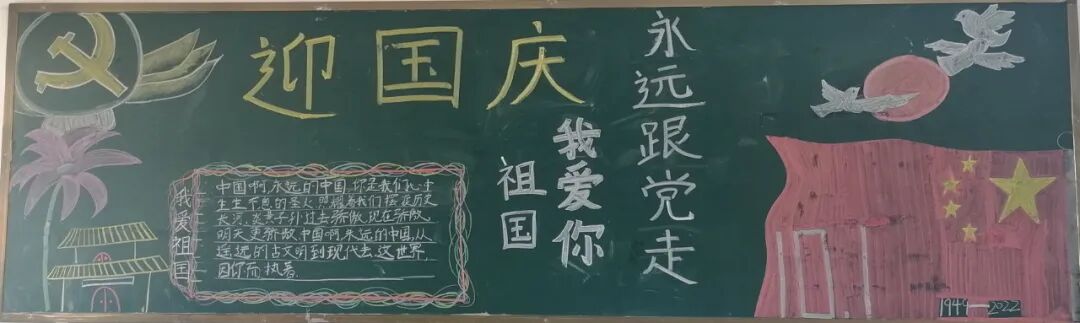 迎国庆
永远跟党走
祖国
我爱你
我爱祖国
中国啊,永远的中国,你是我们
生生不息的圣火,照耀着我们 历史
长河,炎黄子孙过去骄傲,现在骄傲,
明天更骄傲,中国啊,永远的中国,从
遥远的古文明到现代去,这世界,
因你而执着.
1949—2022